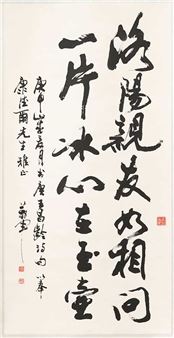 洛陽親友如相問
一片冰心在玉壺
庚申 月書唐王昌齡詩句以奉
康 爾先生雅正